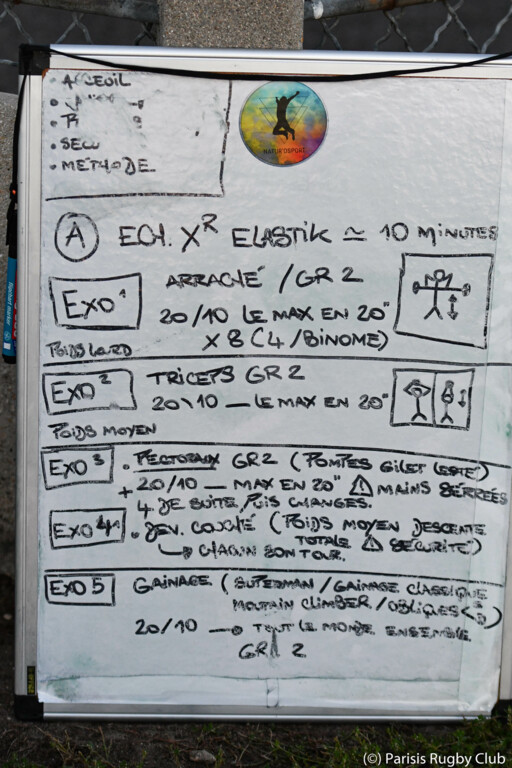 ACCEUIL
• SECU
• METHODE
NATUR'OSPORT
A ECH. XR ELASTIK ≃ 10 MINUTES
EXO 1 ARRACHÉ / GR 2
20/10 LE MAX EN 20"
X 8 (4 / BINOME)
POIDS LOURD
EXO 2 TRICEPS GR 2
20\10 — LE MAX EN 20"
POIDS MOYEN
EXO 3 • PECTORAUX GR 2 (POMPES GILET LESTÉ)
+ 20/10 — MAX EN 20" ⚠ MAINS SERRÉES
4 DE SUITE PUIS CHANGES.
EXO 4 • DEV. COUCHÉ (POIDS MOYEN DESCENTE
TOTALE ⚠ SÉCURITÉ)
↳ CHACUN SON TOUR.
EXO 5 GAINAGE (SUPERMAN / GAINAGE CLASSIQUE
MOUTAIN CLIMBER / OBLIQUES < )
20/10 → TOUT LE MONDE ENSEMBLE
GR 2
(C) Parisis Rugby Club